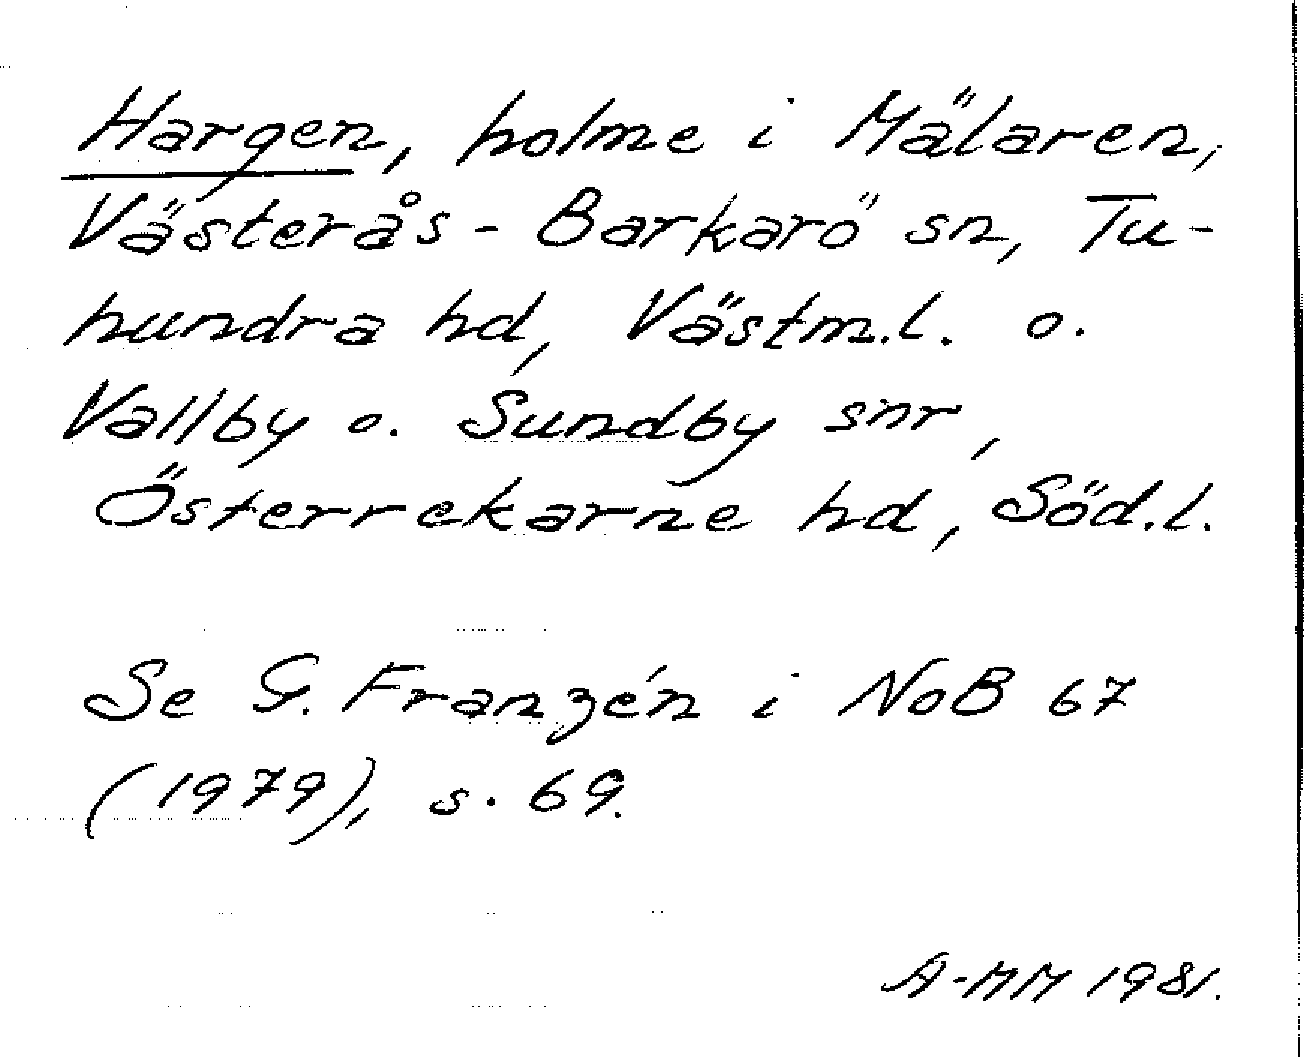 Hargen, holme i Mälaren,
Västerås-Barkarö sn, Tu-
hundra hd, Västm.l. o.
Vallby o. Sundby snr,
Österrekarne hd, Söd.l.
Se G. Franzén i NoB 67
(1979), s. 69.
A-MM 1981.